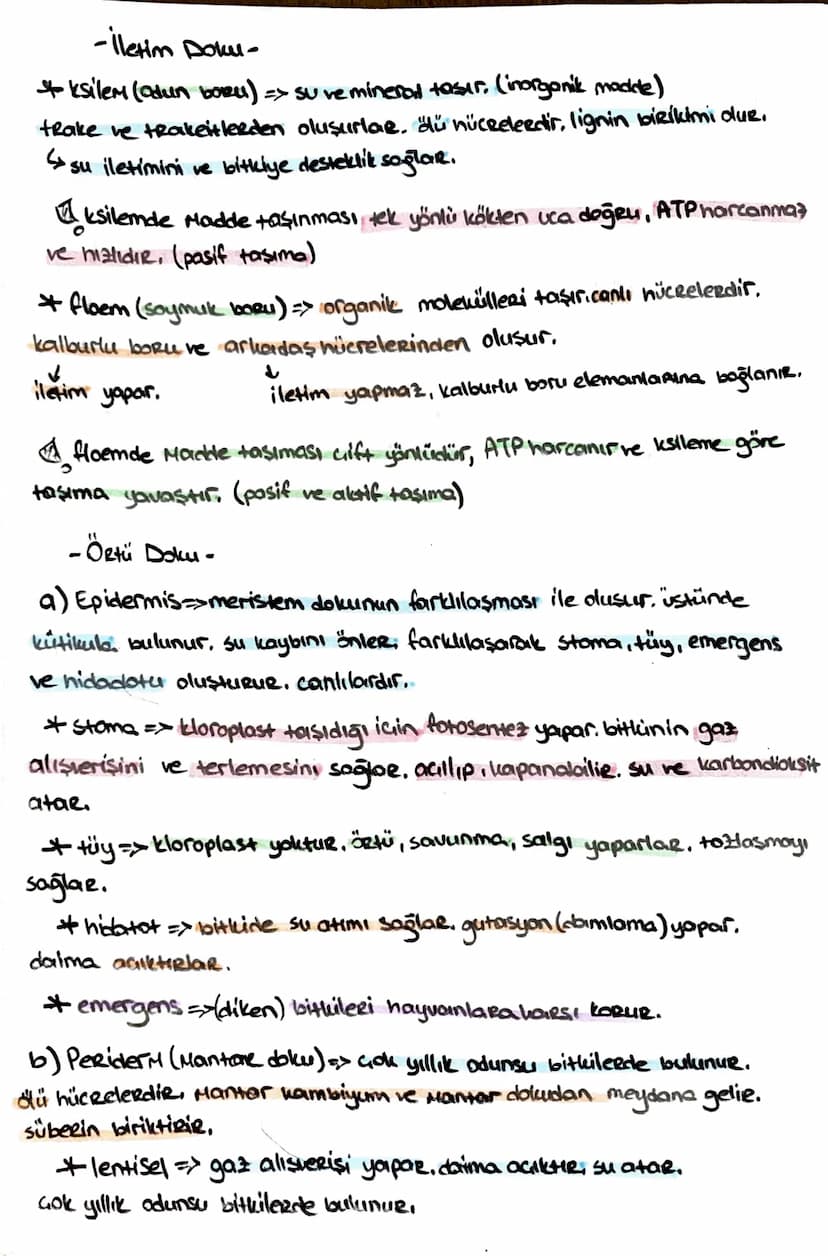 -İletim Doku-
* ksilem (odun boru) => su ve mineral taşır. (inorganik madde)
trake ve trakeitlerden oluşurlar. ölü hücrelerdir. lignin birikimi olur.
↳ su iletimini ve bitkiye desteklik sağlar.
⚠ ksilemde madde taşınması tek yönlü kökten uca doğru, ATP harcanmaz
ve hızlıdır. (pasif taşıma)
* floem (soymuk boru) => organik molekülleri taşır. canlı hücrelerdir.
kalburlu boru ve arkadaş hücrelerinden oluşur.
↓ ↓
iletim yapar. iletim yapmaz, kalburlu boru elemanlarına bağlanır.
⚠ floemde madde taşıması çift yönlüdür, ATP harcanır ve ksileme göre
taşıma yavaştır. (pasif ve aktif taşıma)
-Örtü Doku-
a) Epidermis => meristem dokunun farklılaşması ile oluşur. üstünde
kütikula bulunur. su kaybını önler. farklılaşarak stoma, tüy, emergens
ve hidadotu oluşturur. canlılardır.
* stoma => kloroplast taşıdığı için fotosentez yapar. bitkinin gaz
alışverişini ve terlemesini sağlar. açılıp, kapanabilir. su ve karbondioksit
atar.
* tüy => kloroplast yoktur. örtü, savunma, salgı yaparlar. tozlaşmayı
sağlar.
* hidatot => bitkide su atımı sağlar. gutasyon (damlama) yapar.
daima açıktırlar.
* emergens => (diken) bitkileri hayvanlara karşı korur.
b) Periderm (Mantar doku) => çok yıllık odunsu bitkilerde bulunur.
ölü hücrelerdir. mantar kambiyum ve mantar dokudan meydana gelir.
süberin biriktirir.
* lentisel => gaz alışverişi yapar. daima açıktır. su atar.
çok yıllık odunsu bitkilerde bulunur.